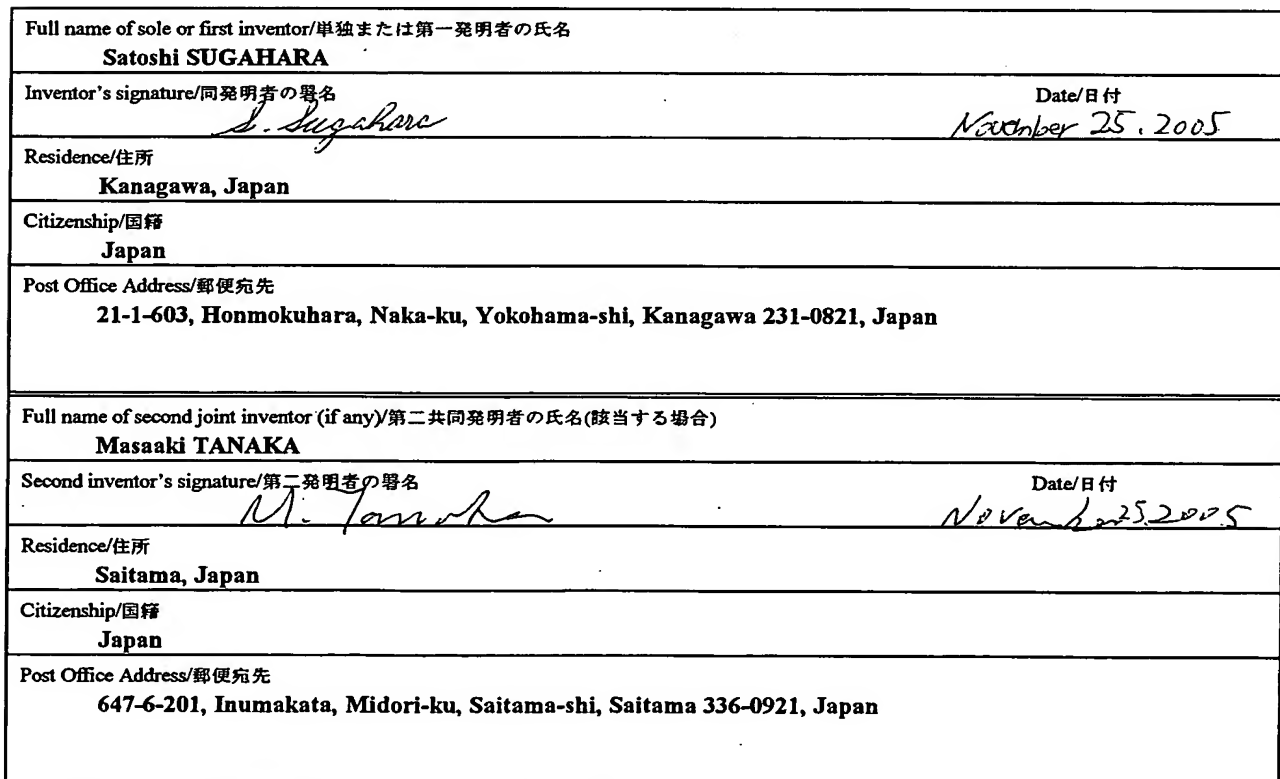 Full name of sole or first inventor/単独または第一発明者の氏名
Satoshi SUGAHARA
Inventor's signature/同発明者の署名 Date/日付
S. Sugahara November 25, 2005
Residence/住所
Kanagawa, Japan
Citizenship/国籍
Japan
Post Office Address/郵便宛先
21-1-603, Honmokuhara, Naka-ku, Yokohama-shi, Kanagawa 231-0821, Japan
Full name of second joint inventor (if any)/第二共同発明者の氏名(該当する場合)
Masaaki TANAKA
Second inventor's signature/第二発明者の署名 Date/日付
M. Tanaka November 25, 2005
Residence/住所
Saitama, Japan
Citizenship/国籍
Japan
Post Office Address/郵便宛先
647-6-201, Inumakata, Midori-ku, Saitama-shi, Saitama 336-0921, Japan